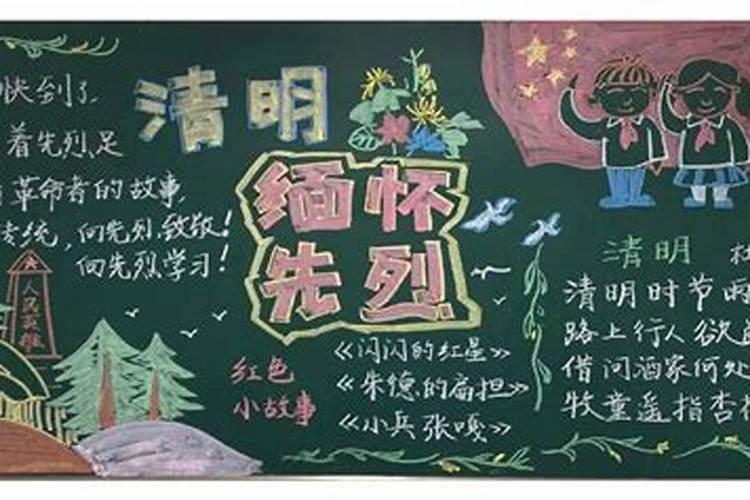 快到了,
清明
着先烈足
革命者的故事,
传统,向先烈致敬!
向先烈学习!
人民英雄
缅怀
先烈
红色
小故事
《闪闪的红星》
《朱德的扁担》
《小兵张嘎》
清明
清明时节雨
路上行人欲
借问酒家何处
牧童遥指杏